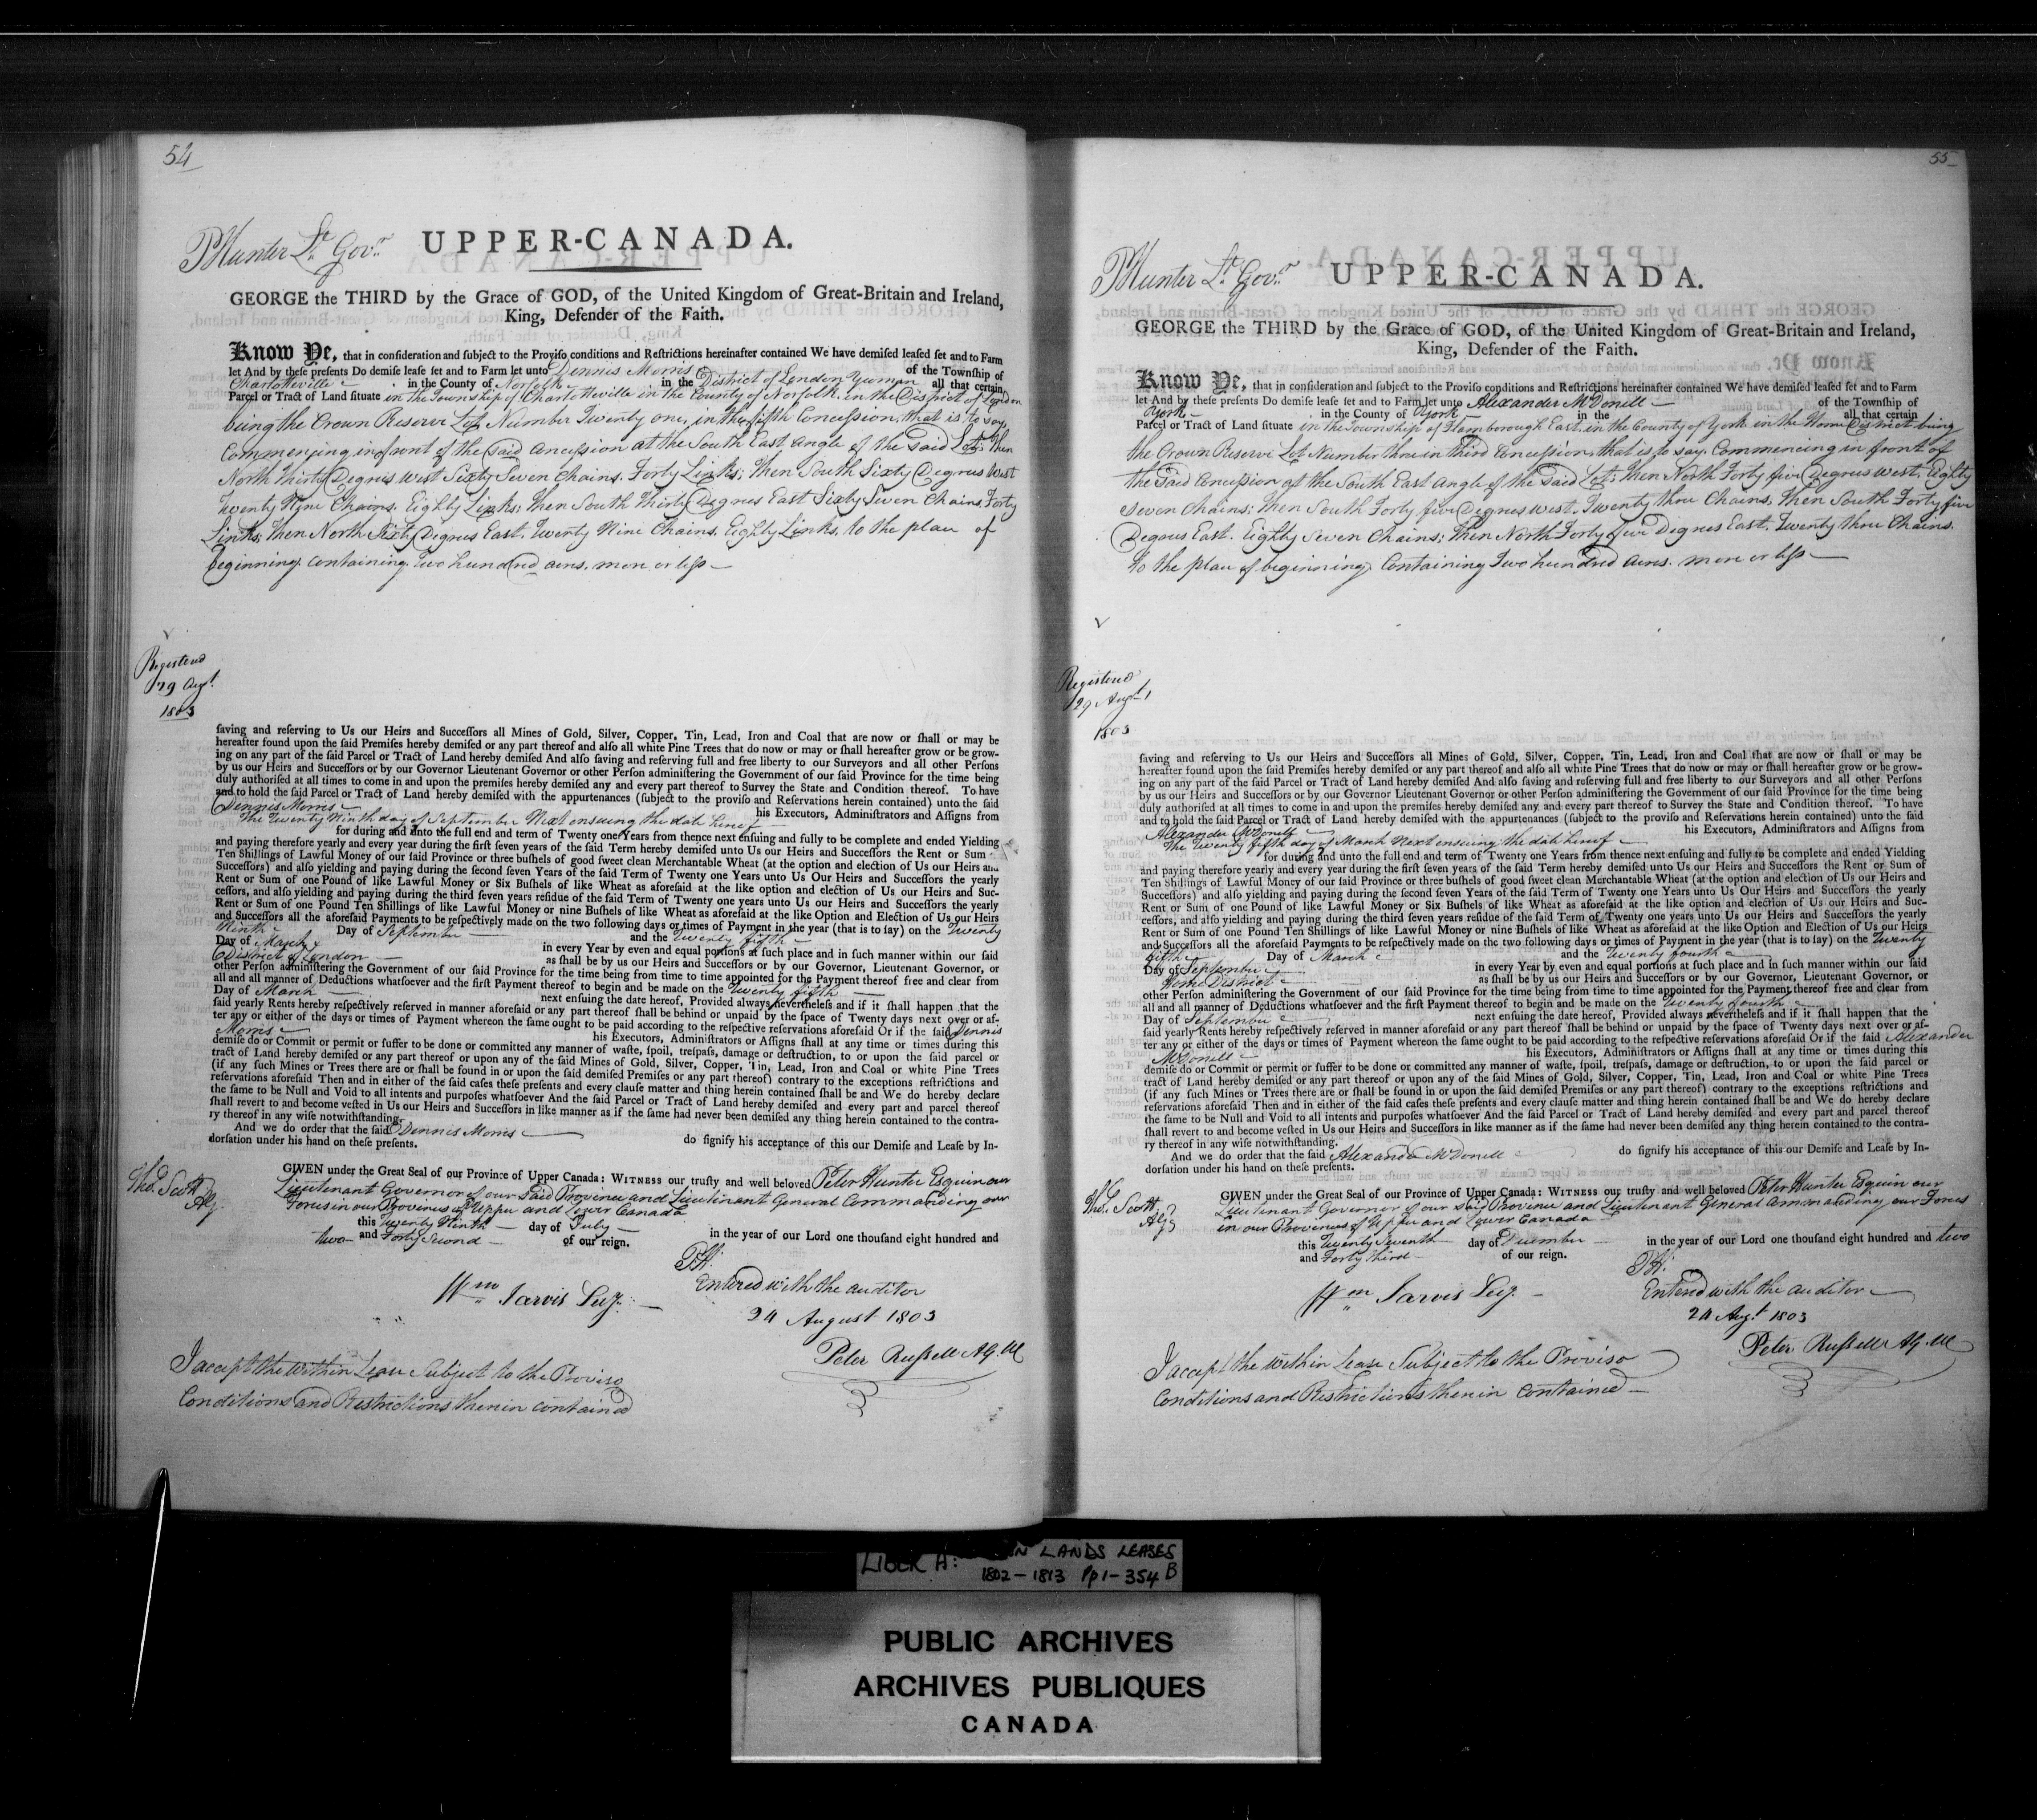 54
PHunter Lt. Govr.
UPPER-CANADA.
GEORGE the THIRD by the Grace of GOD, of the United Kingdom of Great-Britain and Ireland,
King, Defender of the Faith.
Know Ye, that in conſideration and ſubject to the Proviſo conditions and Reſtrictions hereinafter contained We have demiſed leaſed ſet and to Farm
let And by theſe preſents Do demiſe leaſe ſet and to Farm let unto Dennis Morris of the Township of
Charlotteville in the County of Norfolk in the District of London Yeoman all that certain
Parcel or Tract of Land ſituate in the Township of Charlotteville in the County of Norfolk in the District of London
being the Crown Reserve Lot Number Twenty one, in the fifth Concession, that is to say,
Commencing in front of the said Concession at the South East angle of the said Lot; Then
North Thirty Degrees West Sixty Seven Chains, Forty Links; Then South Sixty Degrees West
Twenty Nine Chains, Eighty Links; Then South Thirty Degrees East Sixty Seven Chains, Forty
Links; Then North Sixty Degrees East, Twenty Nine Chains, Eighty Links, to the place of
beginning, containing Two hundred acres, more or less
Registered
29 Augt.
1803
ſaving and reſerving to Us our Heirs and Succeſſors all Mines of Gold, Silver, Copper, Tin, Lead, Iron and Coal that are now or ſhall or may be
hereafter found upon the ſaid Premiſes hereby demiſed or any part thereof and alſo all white Pine Trees that do now or may or ſhall hereafter grow or be grow-
ing on any part of the ſaid Parcel or Tract of Land hereby demiſed And alſo ſaving and reſerving full and free liberty to our Surveyors and all other Perſons
by us our Heirs and Succeſſors or by our Governor Lieutenant Governor or other Perſon adminiſtering the Government of our ſaid Province for the time being
duly authoriſed at all times to come in and upon the premiſes hereby demiſed any and every part thereof to Survey the State and Condition thereof. To have
and to hold the ſaid Parcel or Tract of Land hereby demiſed with the appurtenances (ſubject to the proviſo and Reſervations herein contained) unto the ſaid
Dennis Morris his Executors, Adminiſtrators and Aſſigns from
the Twenty Ninth day of September Next ensuing the date hereof
for during and unto the full end and term of Twenty one Years from thence next enſuing and fully to be complete and ended Yielding
and paying therefore yearly and every year during the firſt ſeven years of the ſaid Term hereby demiſed unto Us our Heirs and Succeſſors the Rent or Sum
Ten Shillings of Lawful Money of our ſaid Province or three buſhels of good ſweet clean Merchantable Wheat (at the option and election of Us our Heirs and
Succeſſors) and alſo yielding and paying during the ſecond ſeven Years of the ſaid Term of Twenty one Years unto Us Our Heirs and Succeſſors the yearly
Rent or Sum of one Pound of like Lawful Money or Six Buſhels of like Wheat as aforeſaid at the like option and election of Us our Heirs and Suc-
ceſſors, and alſo yielding and paying during the third ſeven years reſidue of the ſaid Term of Twenty one years unto Us our Heirs and Succeſſors the yearly
Rent or Sum of one Pound Ten Shillings of like Lawful Money or nine Buſhels of like Wheat as aforeſaid at the like Option and Election of Us our Heirs
and Succeſſors all the aforeſaid Payments to be reſpectively made on the two following days or times of Payment in the year (that is to ſay) on the Twenty
Ninth Day of September and the Twenty fifth
Day of March in every Year by even and equal portions at ſuch place and in ſuch manner within our ſaid
District of London as ſhall be by us our Heirs and Succeſſors or by our Governor, Lieutenant Governor, or
other Perſon adminiſtering the Government of our ſaid Province for the time being from time to time appointed for the Payment thereof free and clear from
all and all manner of Deductions whatſoever and the firſt Payment thereof to begin and be made on the Twenty fifth
Day of March next enſuing the date hereof, Provided always nevertheleſs and if it ſhall happen that the
ſaid yearly Rents hereby reſpectively reſerved in manner aforeſaid or any part thereof ſhall be behind or unpaid by the ſpace of Twenty days next over or af-
ter any or either of the days or times of Payment whereon the ſame ought to be paid according to the reſpective reſervations aforeſaid Or if the ſaid Dennis
Morris his Executors, Adminiſtrators or Aſſigns ſhall at any time or times during this
demiſe do or Commit or permit or ſuffer to be done or committed any manner of waſte, ſpoil, treſpaſs, damage or deſtruction, to or upon the ſaid parcel or
tract of Land hereby demiſed or any part thereof or upon any of the ſaid Mines of Gold, Silver, Copper, Tin, Lead, Iron and Coal or white Pine Trees
(if any ſuch Mines or Trees there are or ſhall be found in or upon the ſaid demiſed Premiſes or any part thereof) contrary to the exceptions reſtrictions and
reſervations aforeſaid Then and in either of the ſaid caſes theſe preſents and every clauſe matter and thing herein contained ſhall be and We do hereby declare
the ſame to be Null and Void to all intents and purpoſes whatſoever And the ſaid Parcel or Tract of Land hereby demiſed and every part and parcel thereof
ſhall revert to and become veſted in Us our Heirs and Succeſſors in like manner as if the ſame had never been demiſed any thing herein contained to the contra-
ry thereof in any wiſe notwithſtanding.
And we do order that the ſaid Dennis Morris do ſignify his acceptance of this our Demiſe and Leaſe by In-
dorſation under his hand on theſe preſents.
Tho. Scott
Atty.
GIVEN under the Great Seal of our Province of Upper Canada: WITNESS our truſty and well beloved Peter Hunter Esquire our
Lieutenant Governor of our said Province and Lieutenant General Commanding our
Forces in our Provinces of Upper and Lower Canada
this Twenty Ninth day of July in the year of our Lord one thouſand eight hundred and
two and Forty Second of our reign.
P.H.
Wm Jarvis Secy.
Entered with the auditor
24 August 1803
Peter Russell A.G.
I accept the within Lease Subject to the Proviso
Conditions and Restrictions therein contained
55
PHunter Lt. Govr.
UPPER-CANADA.
GEORGE the THIRD by the Grace of GOD, of the United Kingdom of Great-Britain and Ireland,
King, Defender of the Faith.
Know Ye, that in conſideration and ſubject to the Proviſo conditions and Reſtrictions hereinafter contained We have demiſed leaſed ſet and to Farm
let And by theſe preſents Do demiſe leaſe ſet and to Farm let unto Alexander McDonell of the Township of
York in the County of York in the all that certain
Parcel or Tract of Land ſituate in the Township of Flamborough East, in the County of York in the Home District being
the Crown Reserve Lot Number three in Third Concession, that is to say, Commencing in front of
the said Concession at the South East angle of the said Lot; Then North Forty five Degrees West, Eighty
seven Chains; Then South Forty five Degrees West, Twenty three Chains, Then South Forty five
Degrees East, Eighty Seven Chains; Then North Forty five Degrees East, Twenty three Chains,
to the place of beginning, Containing Two hundred acres, more or less
Registered
29 Augt.
1803
ſaving and reſerving to Us our Heirs and Succeſſors all Mines of Gold, Silver, Copper, Tin, Lead, Iron and Coal that are now or ſhall or may be
hereafter found upon the ſaid Premiſes hereby demiſed or any part thereof and alſo all white Pine Trees that do now or may or ſhall hereafter grow or be grow-
ing on any part of the ſaid Parcel or Tract of Land hereby demiſed And alſo ſaving and reſerving full and free liberty to our Surveyors and all other Perſons
by us our Heirs and Succeſſors or by our Governor Lieutenant Governor or other Perſon adminiſtering the Government of our ſaid Province for the time being
duly authoriſed at all times to come in and upon the premiſes hereby demiſed any and every part thereof to Survey the State and Condition thereof. To have
and to hold the ſaid Parcel or Tract of Land hereby demiſed with the appurtenances (ſubject to the proviſo and Reſervations herein contained) unto the ſaid
Alexander McDonell his Executors, Adminiſtrators and Aſſigns from
the Twenty fifth day of March Next ensuing the date hereof
for during and unto the full end and term of Twenty one Years from thence next enſuing and fully to be complete and ended Yielding
and paying therefore yearly and every year during the firſt ſeven years of the ſaid Term hereby demiſed unto Us our Heirs and Succeſſors the Rent or Sum of
Ten Shillings of Lawful Money of our ſaid Province or three buſhels of good ſweet clean Merchantable Wheat (at the option and election of Us our Heirs and
Succeſſors) and alſo yielding and paying during the ſecond ſeven Years of the ſaid Term of Twenty one Years unto Us Our Heirs and Succeſſors the yearly
Rent or Sum of one Pound of like Lawful Money or Six Buſhels of like Wheat as aforeſaid at the like option and election of Us our Heirs and Suc-
ceſſors, and alſo yielding and paying during the third ſeven years reſidue of the ſaid Term of Twenty one years unto Us our Heirs and Succeſſors the yearly
Rent or Sum of one Pound Ten Shillings of like Lawful Money or nine Buſhels of like Wheat as aforeſaid at the like Option and Election of Us our Heirs
and Succeſſors all the aforeſaid Payments to be reſpectively made on the two following days or times of Payment in the year (that is to ſay) on the Twenty
fifth Day of March and the Twenty fourth
Day of September in every Year by even and equal portions at ſuch place and in ſuch manner within our ſaid
Home District as ſhall be by us our Heirs and Succeſſors or by our Governor, Lieutenant Governor, or
other Perſon adminiſtering the Government of our ſaid Province for the time being from time to time appointed for the Payment thereof free and clear from
all and all manner of Deductions whatſoever and the firſt Payment thereof to begin and be made on the Twenty fourth
Day of September next enſuing the date hereof, Provided always nevertheleſs and if it ſhall happen that the
ſaid yearly Rents hereby reſpectively reſerved in manner aforeſaid or any part thereof ſhall be behind or unpaid by the ſpace of Twenty days next over or af-
ter any or either of the days or times of Payment whereon the ſame ought to be paid according to the reſpective reſervations aforeſaid Or if the ſaid Alexander
McDonell his Executors, Adminiſtrators or Aſſigns ſhall at any time or times during this
demiſe do or Commit or permit or ſuffer to be done or committed any manner of waſte, ſpoil, treſpaſs, damage or deſtruction, to or upon the ſaid parcel or
tract of Land hereby demiſed or any part thereof or upon any of the ſaid Mines of Gold, Silver, Copper, Tin, Lead, Iron and Coal or white Pine Trees
(if any ſuch Mines or Trees there are or ſhall be found in or upon the ſaid demiſed Premiſes or any part thereof) contrary to the exceptions reſtrictions and
reſervations aforeſaid Then and in either of the ſaid caſes theſe preſents and every clauſe matter and thing herein contained ſhall be and We do hereby declare
the ſame to be Null and Void to all intents and purpoſes whatſoever And the ſaid Parcel or Tract of Land hereby demiſed and every part and parcel thereof
ſhall revert to and become veſted in Us our Heirs and Succeſſors in like manner as if the ſame had never been demiſed any thing herein contained to the contra-
ry thereof in any wiſe notwithſtanding.
And we do order that the ſaid Alexander McDonell do ſignify his acceptance of this our Demiſe and Leaſe by In-
dorſation under his hand on theſe preſents.
Tho. Scott
Atty.
GIVEN under the Great Seal of our Province of Upper Canada: WITNESS our truſty and well beloved Peter Hunter Esquire our
Lieutenant Governor of our said Province and Lieutenant General Commanding our Forces
in our Provinces of Upper and Lower Canada
this Twenty Seventh day of December in the year of our Lord one thouſand eight hundred and two
and Forty third of our reign.
P.H.
Wm Jarvis Secy.
Entered with the auditor
24 Augt. 1803
Peter Russell A.G.
I accept the within Lease Subject to the Proviso
Conditions and Restrictions therein contained
LIBER A: LANDS LEASES
1802-1813 Pp 1-354 B
PUBLIC ARCHIVES
ARCHIVES PUBLIQUES
CANADA